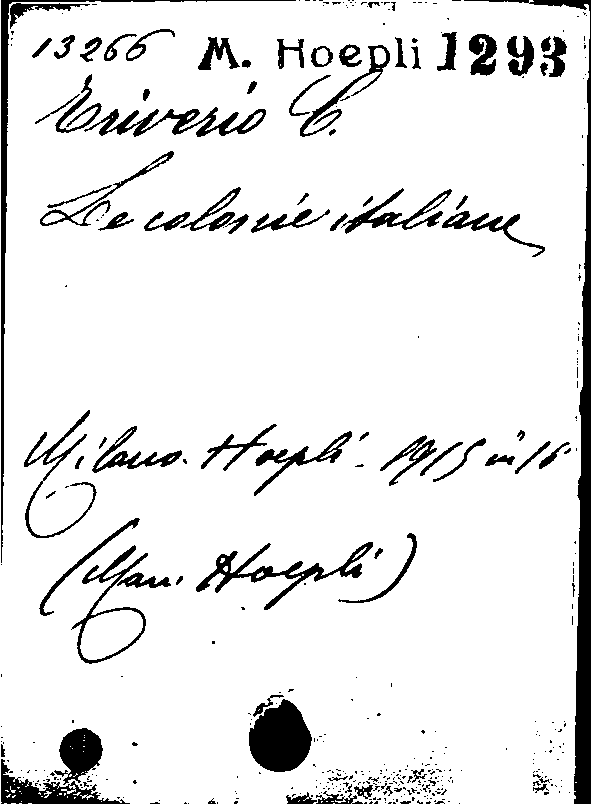 13266 M. Hoepli 1293
Eriverio C.
Le colonie italiane
Milano. Hoepli. 1915 in 16
(Man. Hoepli)